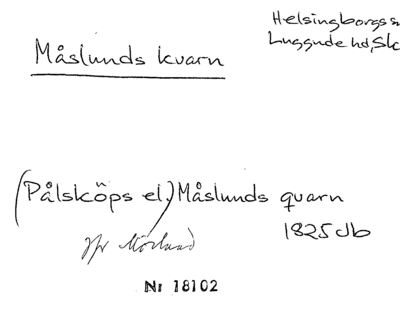 Helsingborgs s
Luggude hd, Sk
Måslunds kvarn
(Pålsköps el.) Måslunds quarn
1825 db
jfr Mörlund
Nr 18102